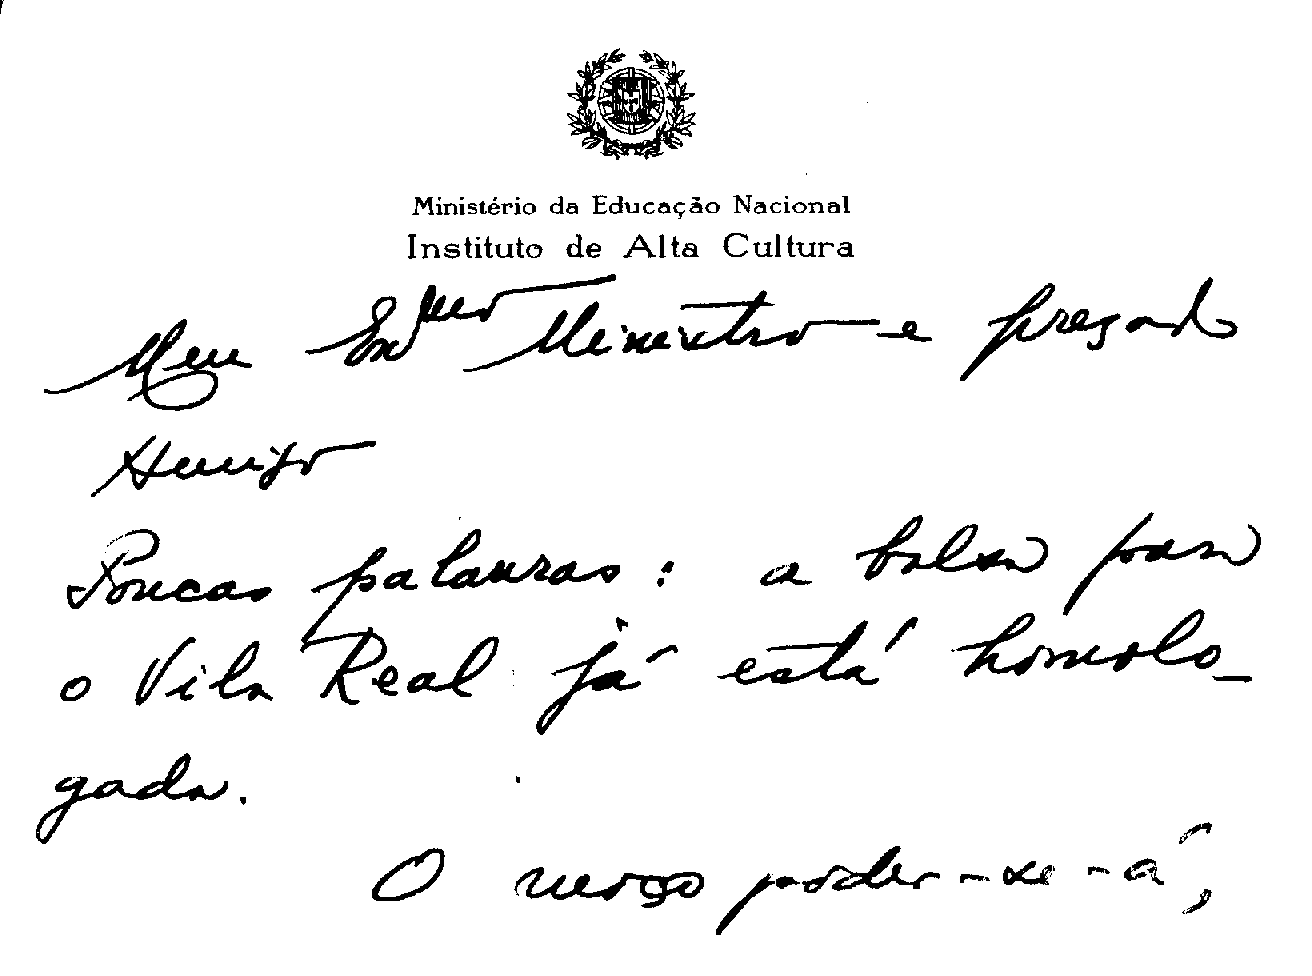 Ministério da Educação Nacional
Instituto de Alta Cultura
Meu Exmo Ministro e prezado
Amigo
Poucas palavras: a bolsa para
o Vila Real já está homolo-
gada.
O moço poder-se-á,